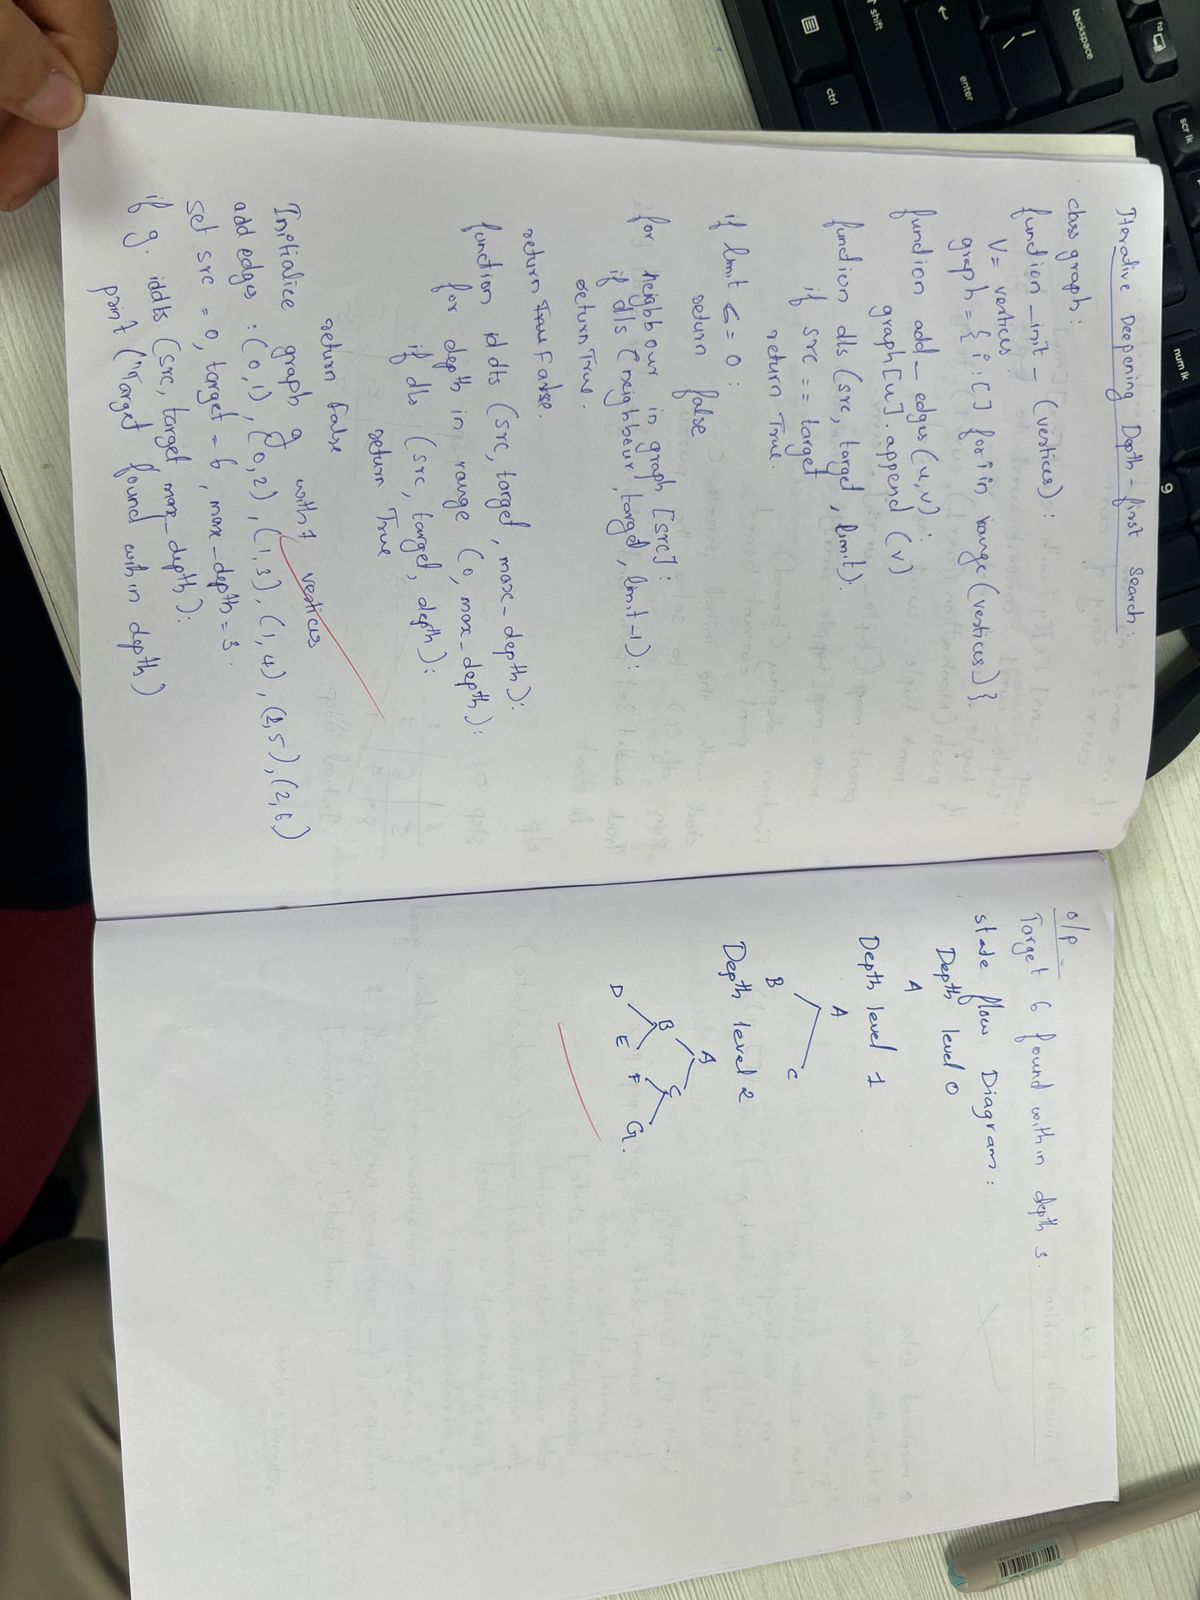 Iterative Deepening Depth-first Search:
class graph:
function _init_ (vertices):
V = vertices
graph = { i:[] for i in range(vertices)}.
function add_edges(u,v):
graph[u].append(v)
function dls(src, target, limit):
if src == target
return True.
if limit <= 0:
return false
for neighbour in graph[src]:
if dls (neighbour, target, limit-1):
return True.
return False.
function iddfs (src, target, max_depth):
for depth in range (0, max_depth):
if dls (src, target, depth):
return True
return false
Initialize graph g with 7 vertices
add edges : (0,1), (0,2), (1,3), (1,4), (2,5), (2,6)
set src = 0, target = 6, max_depth = 3.
if g. iddfs (src, target max_depth):
print ("Target found within depth)
o/p -
Target 6 found within depth 3.
state flow Diagram:
Depth level 0
A
Depth level 1
A
B C
Depth level 2
A
B C
D E F G.
backspace
enter
shift
ctrl
scr lk
num lk
9